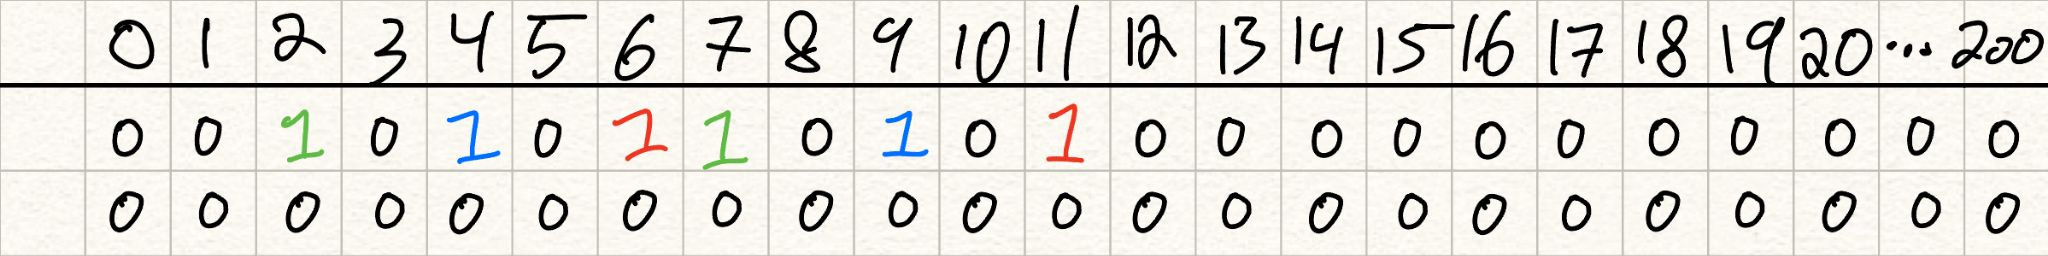 0 1 2 3 4 5 6 7 8 9 10 11 12 13 14 15 16 17 18 19 20 ... 200
0 0 1 0 1 0 1 1 0 1 0 1 0 0 0 0 0 0 0 0 0 0 0
0 0 0 0 0 0 0 0 0 0 0 0 0 0 0 0 0 0 0 0 0 0 0